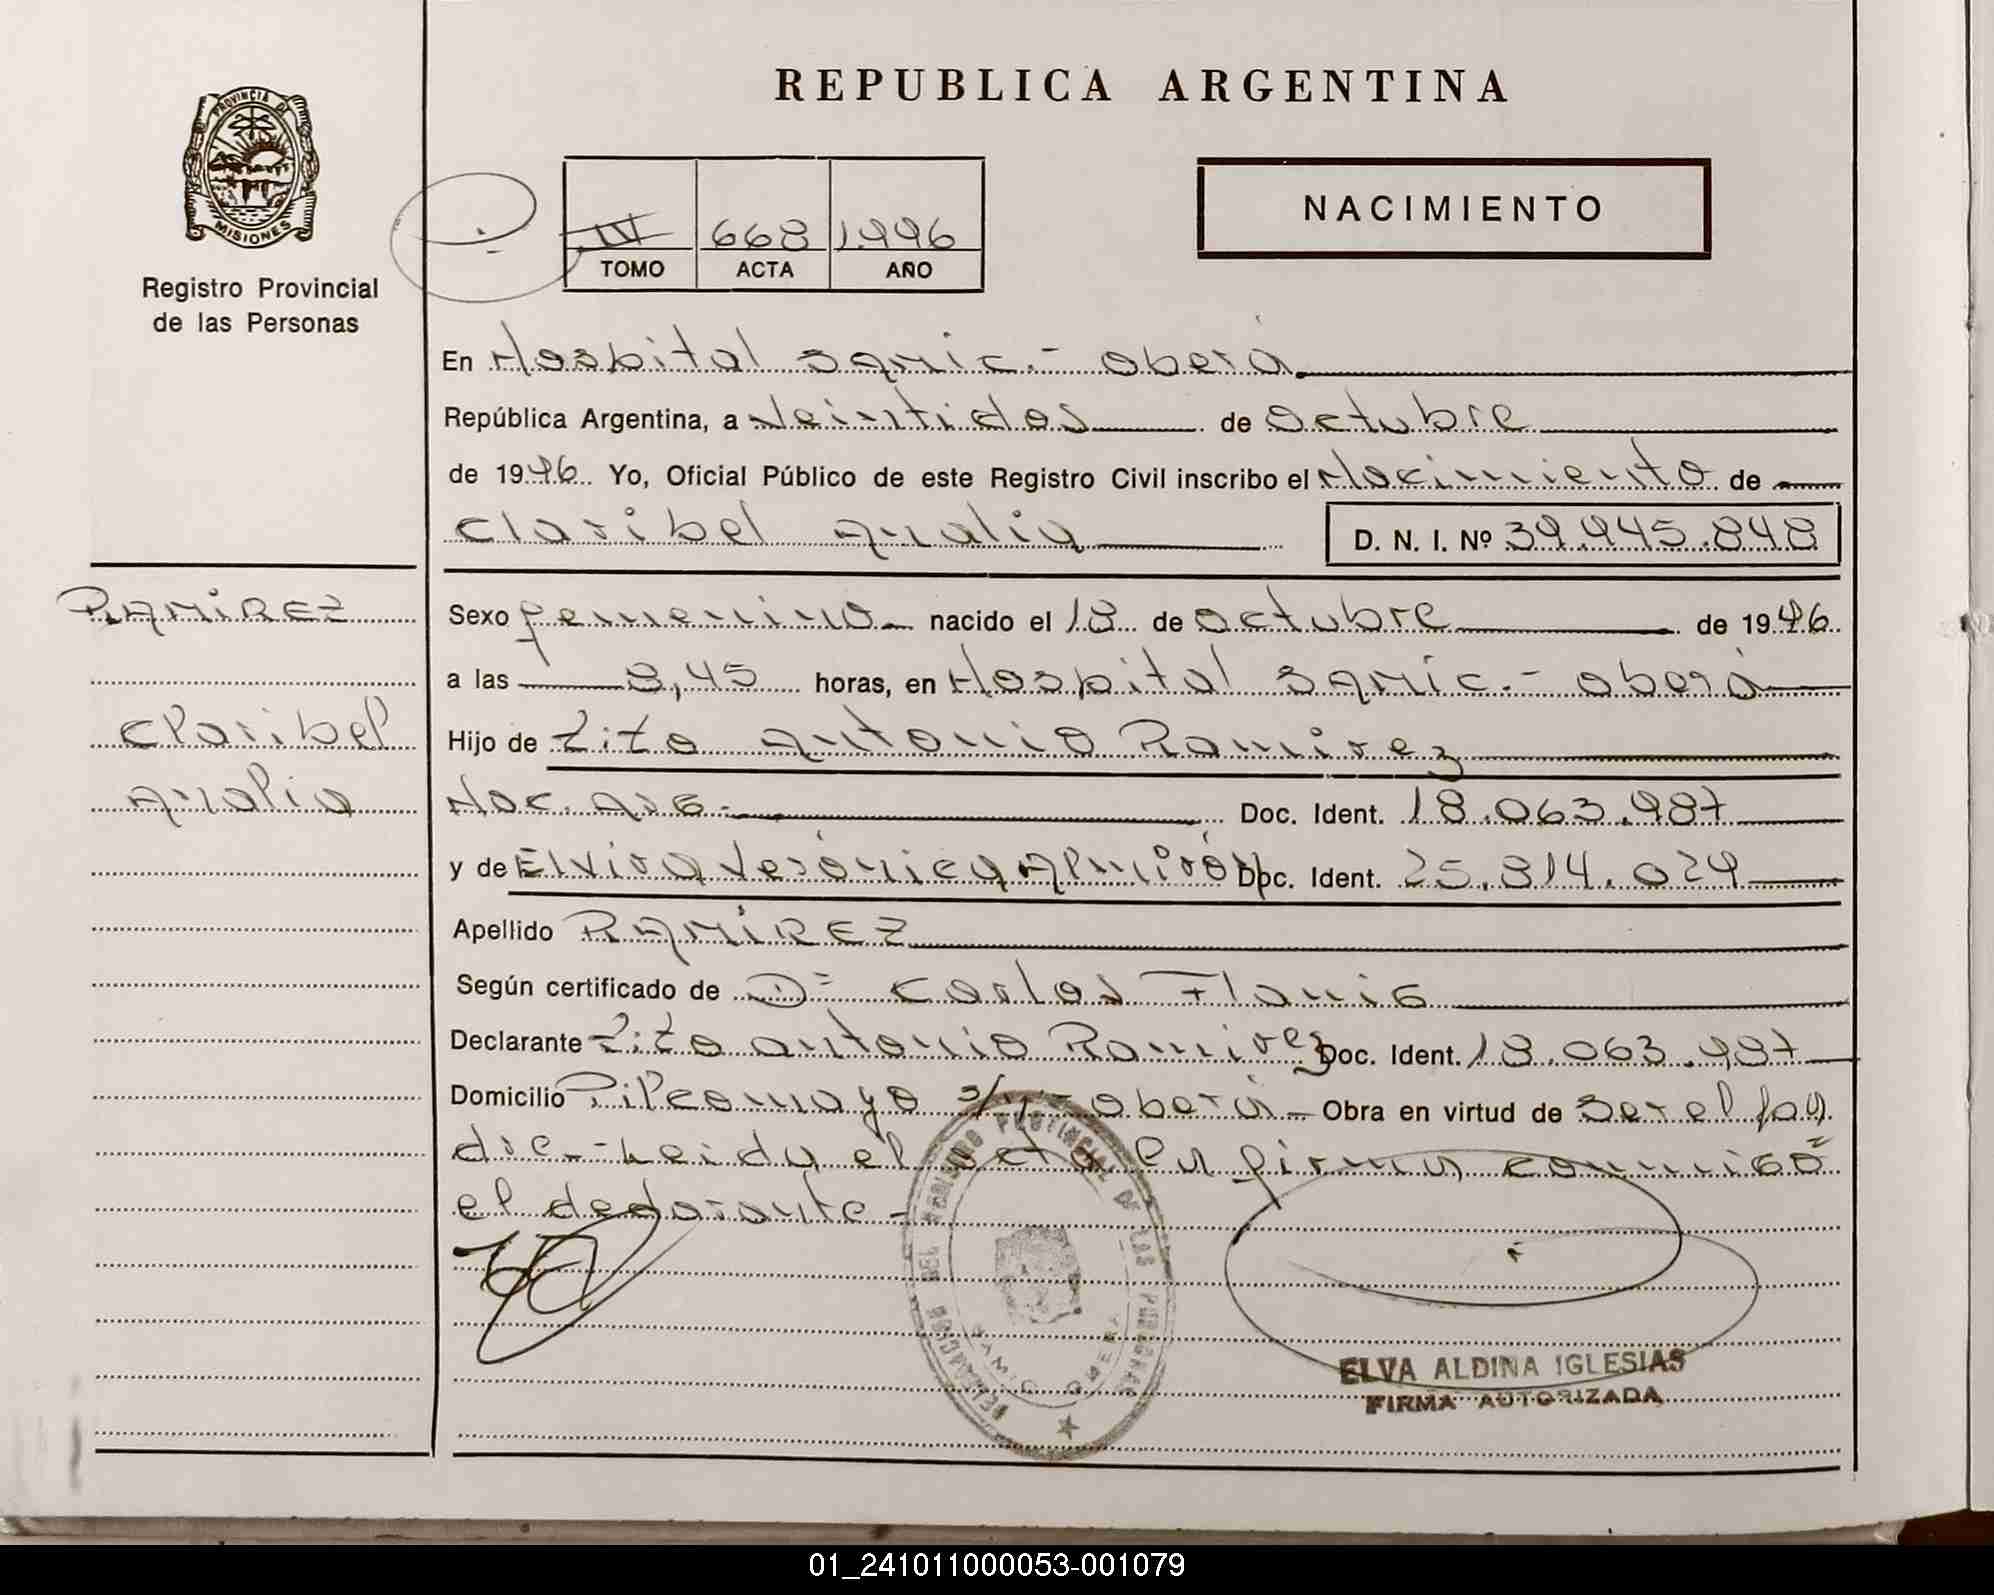 REPUBLICA ARGENTINA
PROVINCIA DE MISIONES
Registro Provincial
de las Personas
III 668 1.996
TOMO ACTA AÑO
NACIMIENTO
En Hospital Samic.- Oberá
República Argentina, a Veintidos de Octubre
de 1996. Yo, Oficial Público de este Registro Civil inscribo el Nacimiento de
Claribel Analia D. N. I. Nº 39.945.848
RAMIREZ
Claribel
Analia
Sexo femenino nacido el 18 de Octubre de 1996
a las 8,45 horas, en Hospital Samic.- Oberá
Hijo de Zito Antonio Ramirez
Nac. Arg. Doc. Ident. 18.063.987
y de Elvira Verónica Almirón Doc. Ident. 25.814.029
Apellido RAMIREZ
Según certificado de Dr Carlos
Declarante Zito Antonio Ramirez Doc. Ident. 18.063.987
Domicilio Pilcomayo s/n - Oberá Obra en virtud de Ser el pa
dre.- Leida el acta la firma conmigo
el declarante-
DELEGACION DEL REGISTRO PROVINCIAL DE LAS PERSONAS
SAMIC OBERA
ELVA ALDINA IGLESIAS
FIRMA AUTORIZADA
01_241011000053-001079